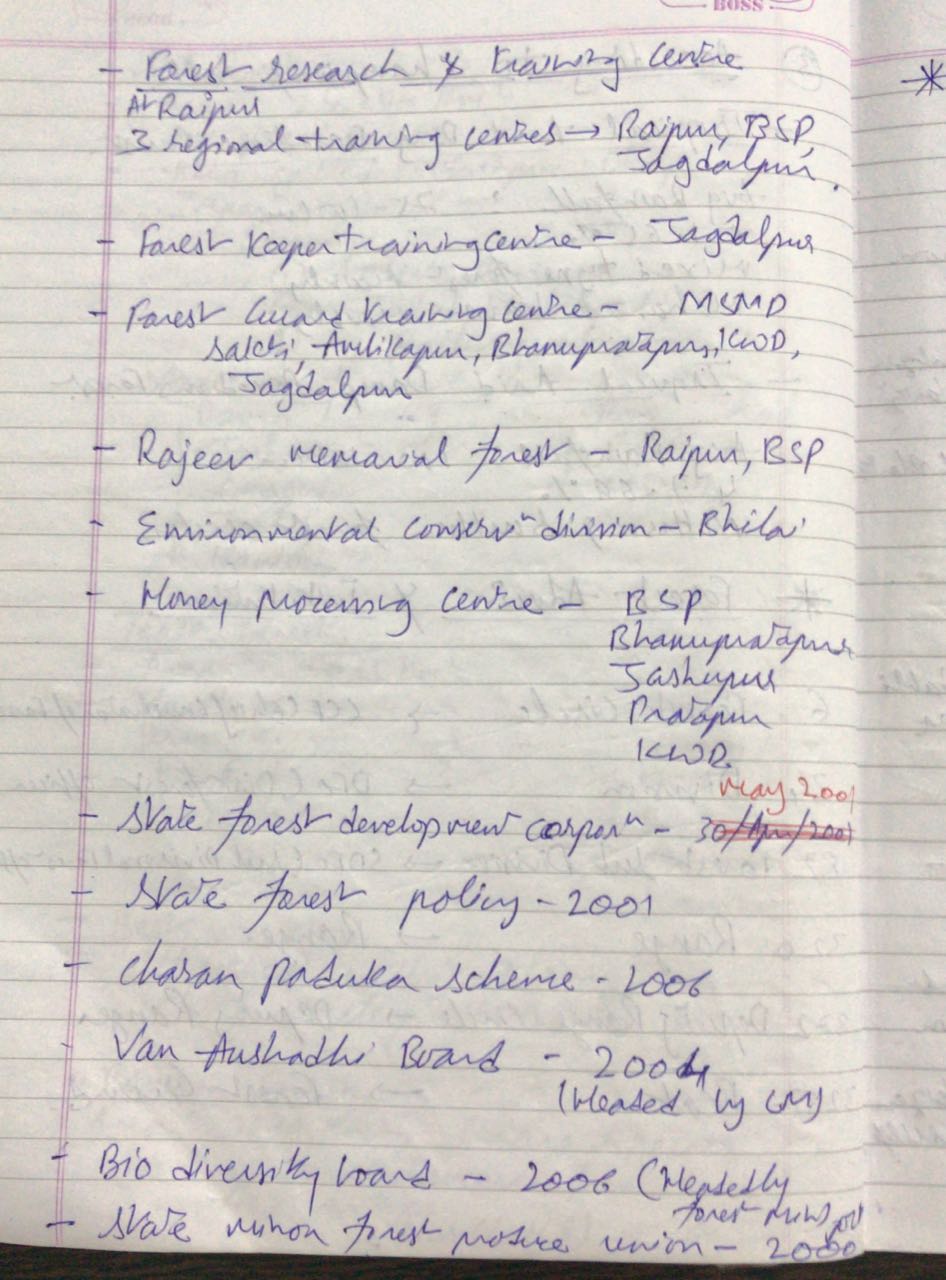 BOSS
- Forest research & training centre
At Raipur
3 regional training centres → Raipur, BSP,
Jagdalpur.
- Forest Keeper training centre - Jagdalpur
- Forest Guard training centre - MSMD
Sakti, Ambikapur, Bhanupratapur, KWD,
Jagdalpur
- Rajeev memorial forest - Raipur, BSP
- Environmental conservⁿ division - Bhilai
- Honey processing centre - BSP
Bhanupratapur
Jashpur
Pratapur
KWD
May 2001
- State forest development corporⁿ - 30/Apr/2001
- State forest policy - 2001
- Charan Paduka scheme - 2006
- Van Aushadhi Board - 2004
(Headed by CM)
- Bio diversity board - 2006 (Headed by
forest
- State minor forest produce union - 2000
*